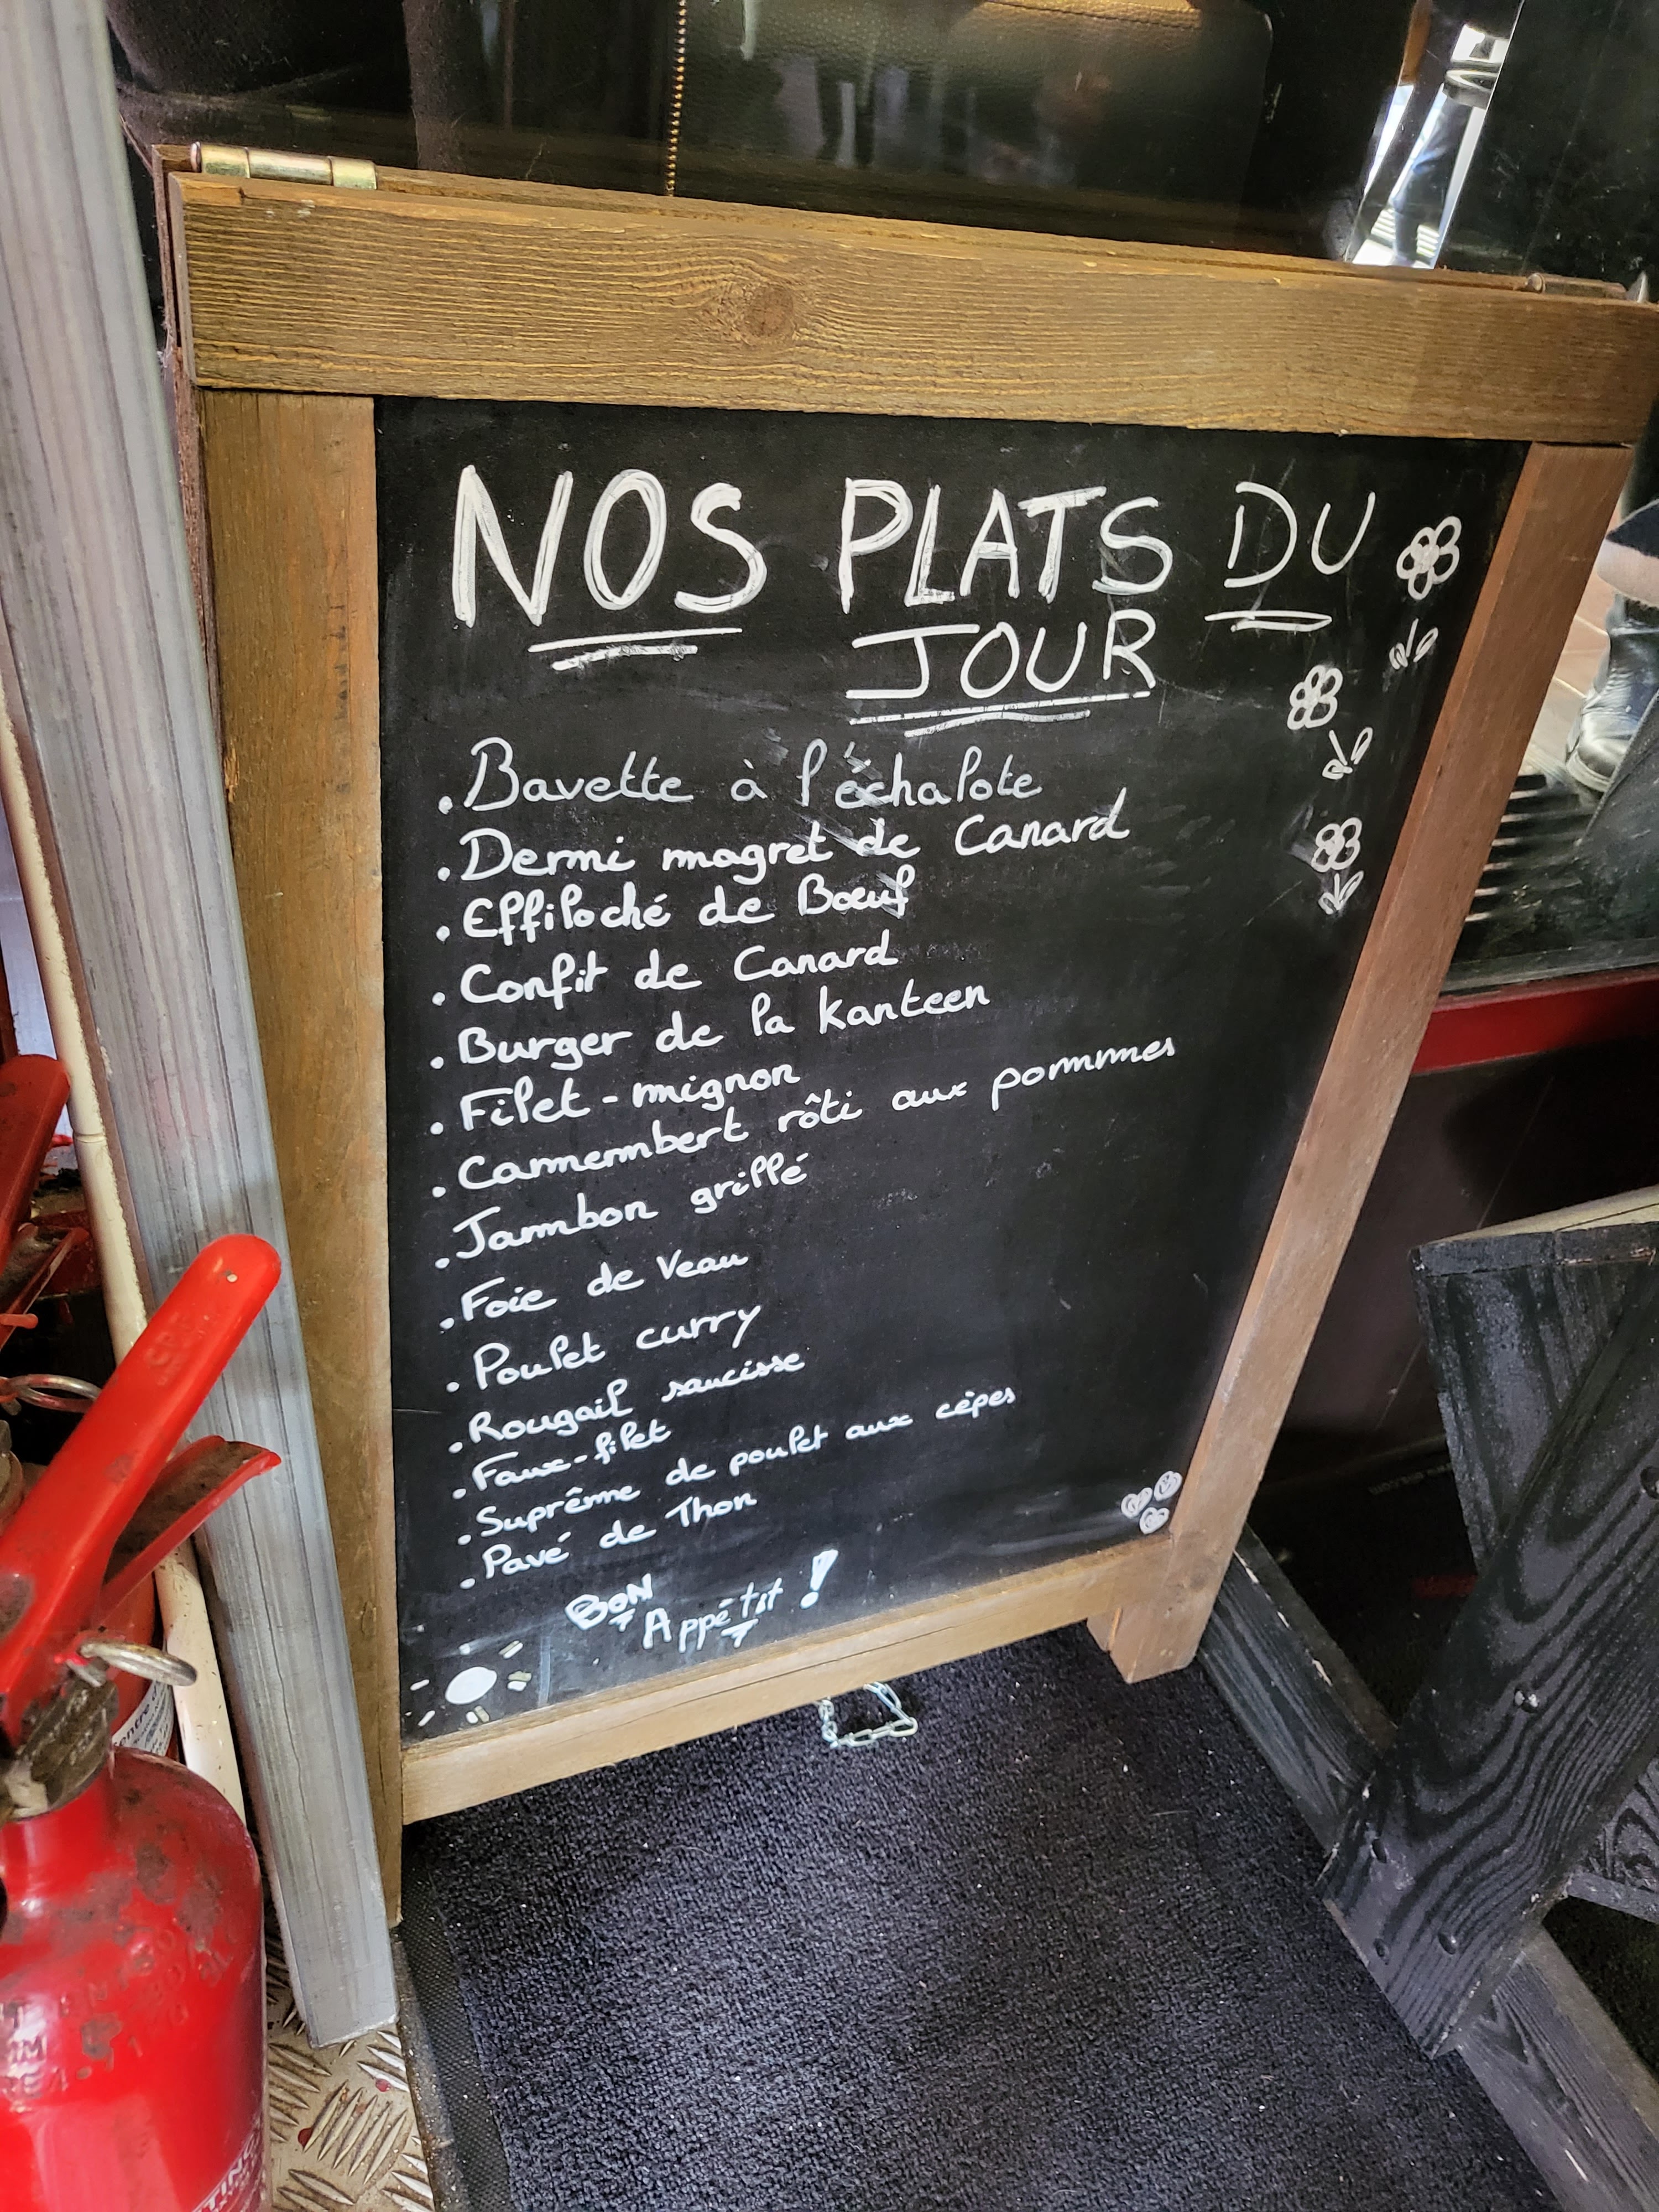 NOS PLATS DU
JOUR
. Bavette à l'échalote
. Demi magret de Canard
. Effiloché de Bœuf
. Confit de Canard
. Burger de la kanteen
. Filet-mignon
. Camembert rôti aux pommes
. Jambon grillé
. Foie de Veau
. Poulet curry
. Rougail saucisse
. Faux-filet
. Suprême de poulet aux cèpes
. Pavé de Thon
BON
Appétit !